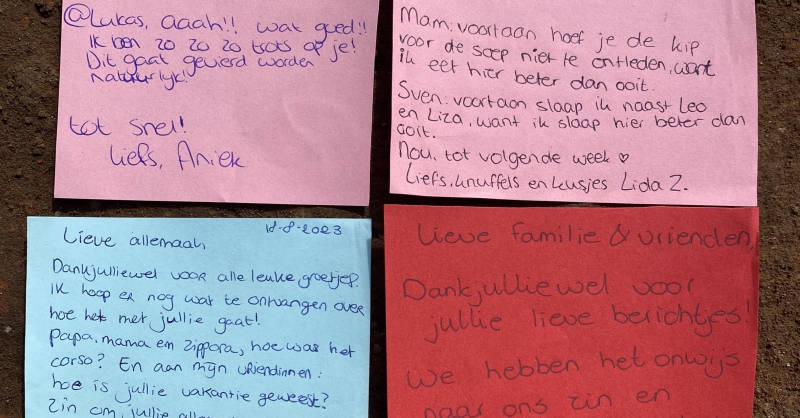 @Lukas, Aaah!! wat goed!!
Ik ben zo zo zo trots op je!
Dit gaat gevierd worden
natuurlijk!
tot snel!
Liefs, Aniek
Mam: voortaan hoef je de kip
voor de soep niet te ontleden, want
ik eet hier beter dan ooit.
Sven: voortaan slaap ik naast Leo
en Liza, want ik slaap hier beter dan
ooit.
Nou, tot volgende week ♥
Liefs, knuffels en kusjes Lida Z.
18-8-2023
Lieve allemaal,
Dankjulliewel voor alle leuke groetjes.
Ik hoop er nog wat te ontvangen over
hoe het met jullie gaat!
Papa, mama em Zippora, hoe was het
corso? En aan mijn vriendinnen:
hoe is jullie vakantie geweest?
zin om jullie
Lieve familie & vrienden,
Dankjulliewel voor
jullie lieve berichtjes!
We hebben het onwijs
naar ons zin en